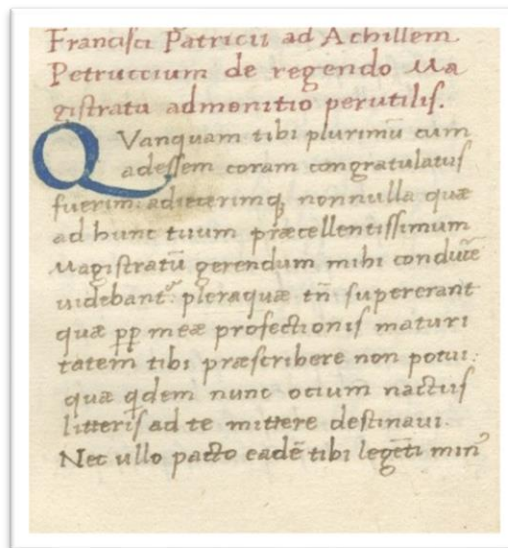 Francisci Patricii ad Achillem
Petruccium de regendo Ma
gistratu admonitio perutilis.
QVanquam tibi plurimũ cum
adessem coram congratulatus
fuerim: adiecerimq̃ nonnulla quæ
ad hunc tuum præcellentissimum
Magistratũ gerendum mihi conducẽ
uidebant᷑: pleraquæ tñ supererant
quæ pp̃ meæ profectionis maturi
tatem tibi præscribere non potui:
quæ qdem nunc ocium nactus
litteris ad te mittere destinaui.
Nec ullo pacto eadẽ tibi legẽti min᷒